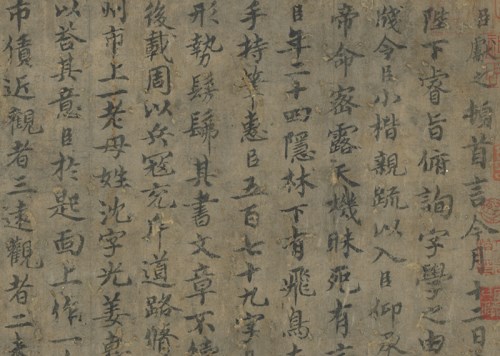 臣獻之稽首言今月十二日
陛下睿旨俯詢字學之由
牋令臣小楷親疏以入臣仰承
帝命密露天機昧死有
臣年二十四隱林下有飛鳥
手持筆惠臣五百七十九字
形勢髣髴其書文章不續
後載周以兵寇充斥道路脩
州市上一老母姓沈字光姜惠
以荅其意臣於匙面上作一
市債近觀者三遠觀者二